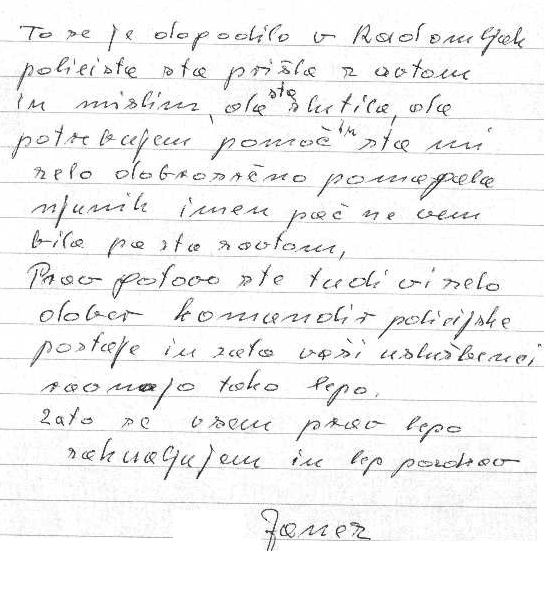 To se je dopodilo v Radomljah
policista sta prišla z avtom
in mislim, da sta slutila, da
potrebujem pomoč in sta mi
zelo dobrosrčno pomagala
njunih imen pač ne vem
bila pa sta z avtom,
Prav gotovo ste tudi vi zelo
dober komandir policijske
postaje in zato vaši uslužbenci
ravnajo tako lepo.
Zato se vsem prav lepo
zahvaljujem in lep pozdrav
Janez